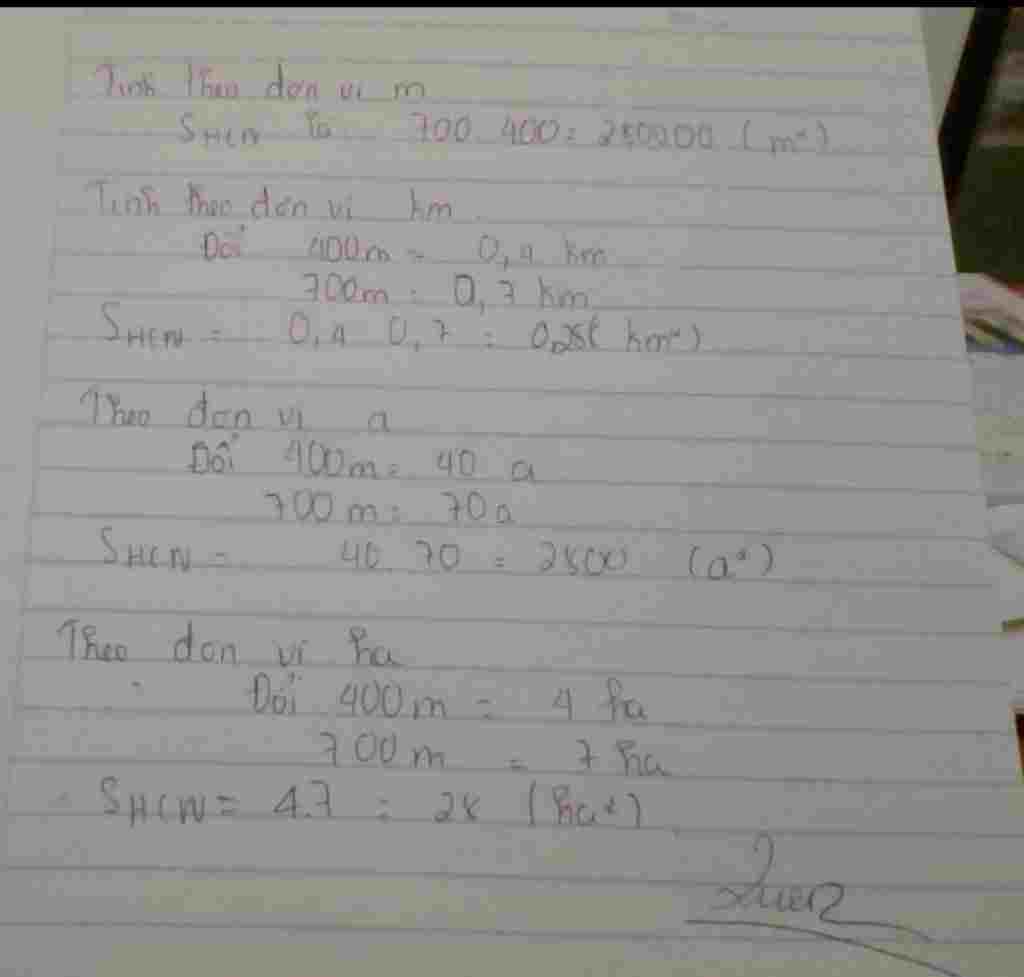 Tính theo đơn vị m
SHCN là 700.400 = 280000 (m²)
Tính theo đơn vị km
Đổi 400m = 0,4 km
700m = 0,7 km
SHCN = 0,4 0,7 = 0,28 (km²)
Theo đơn vị a
Đổi 400m = 40 a
700m = 70a
SHCN = 40.70 = 2800 (a²)
Theo đơn vị ha
Đổi 400m = 4 ha
700m = 7 ha
SHCN = 4.7 = 28 (ha²)